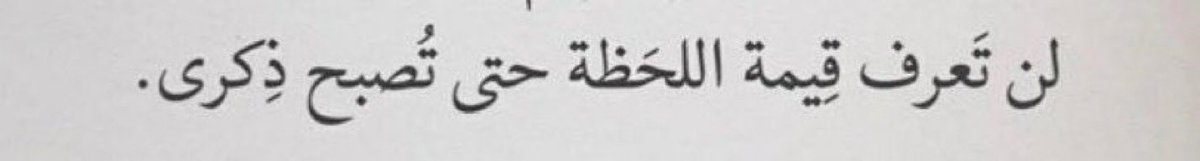 لن تَعرف قِيمة اللحَظة حتى تُصبح ذِكرى.